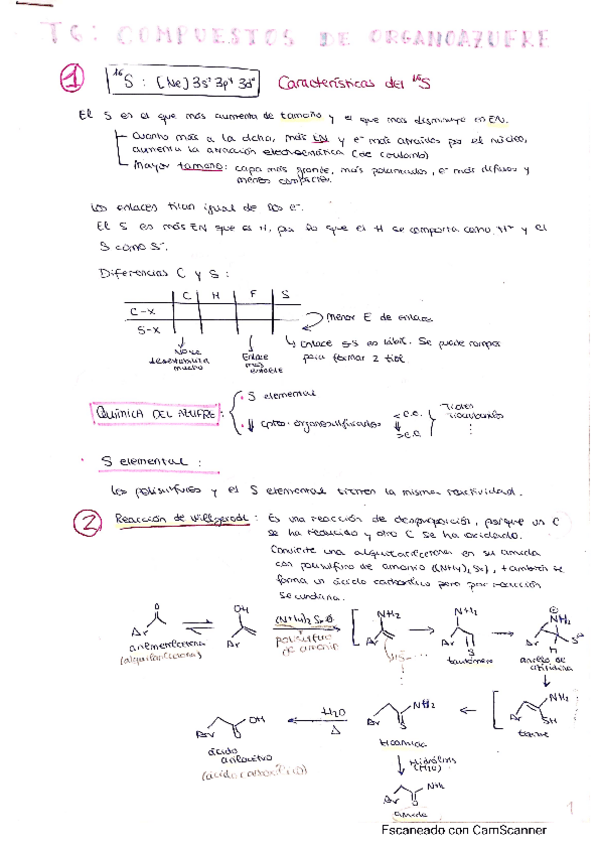 T6: COMPUESTOS DE ORGANOAZUFRE
1 16S: [Ne] 3s² 3p⁴ 3d⁰ Características del 16S
El S es el que más aumenta de tamaño y el que más disminuye en EN.
Cuanto más a la dcha, más EN y e⁻ más atraídos por el núcleo,
aumenta la atracción electrostática (de coulomb)
Mayor tamaño: capa más grande, más polarizados, e⁻ más difusos y
menos compactos.
Los enlaces tiran igual de los e⁻.
El S es más EN que el H, por lo que el H se comporta como H⁺ y el
S como S⁻.
Diferencias C y S:
C H F S
C-X
S-X
menor E de enlace
No se
desestabiliza
mucho
Enlace
más
estable
Enlace S-S es lábil. Se puede romper
para formar 2 tiol
QUÍMICA DEL AZUFRE:
• S elemental
• cptos. organosulfurados
< e.o.
> e.o.
Tioles
• S elemental:
Los polisulfuros y el S elemental tienen la misma reactividad.
2 Reacción de Willgerodt: Es una reacción de desproporción, porque un C
se ha reducido y otro C se ha oxidado.
Convierte una alquilarilcetona en su amida
con polisulfuro de amonio ((NH₄)₂Sx), también se
forma un ácido carboxílico pero por reacción
secundaria.
O
Ar
arilmetilcetona
(alquilarilcetona)
OH
Ar
polisulfuro
de amonio
NH₂
Ar
NH₂
Ar
S
tautómero
NH₂
Ar
S
H
anillo de
NH₂
Ar
SH
NH₂
Ar
S
tioamida
H₂O
Δ
OH
Ar
O
ácido
(ácido carboxílico)
Hidrólisis
(H₂O)
NH₂
Ar
O
amida
1
Escaneado con CamScanner